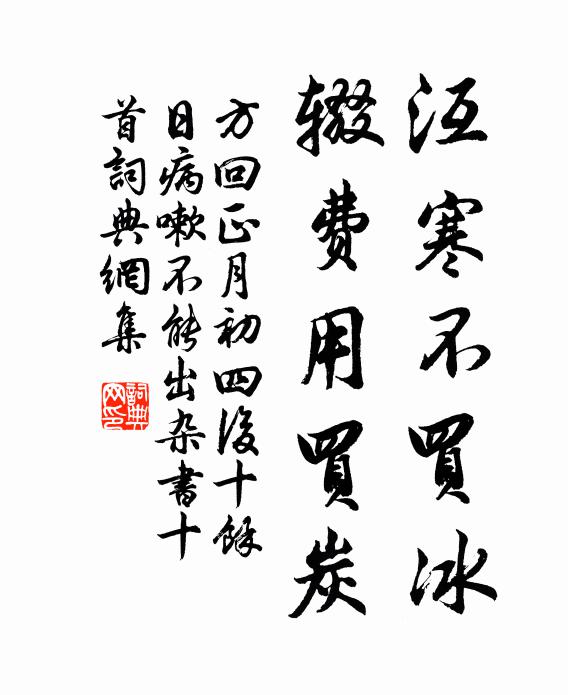 沍寒不買冰
辍費用買炭
方回正月初四後十餘
日病嗽不能出杂書十
首詞典網集
詞典
网印